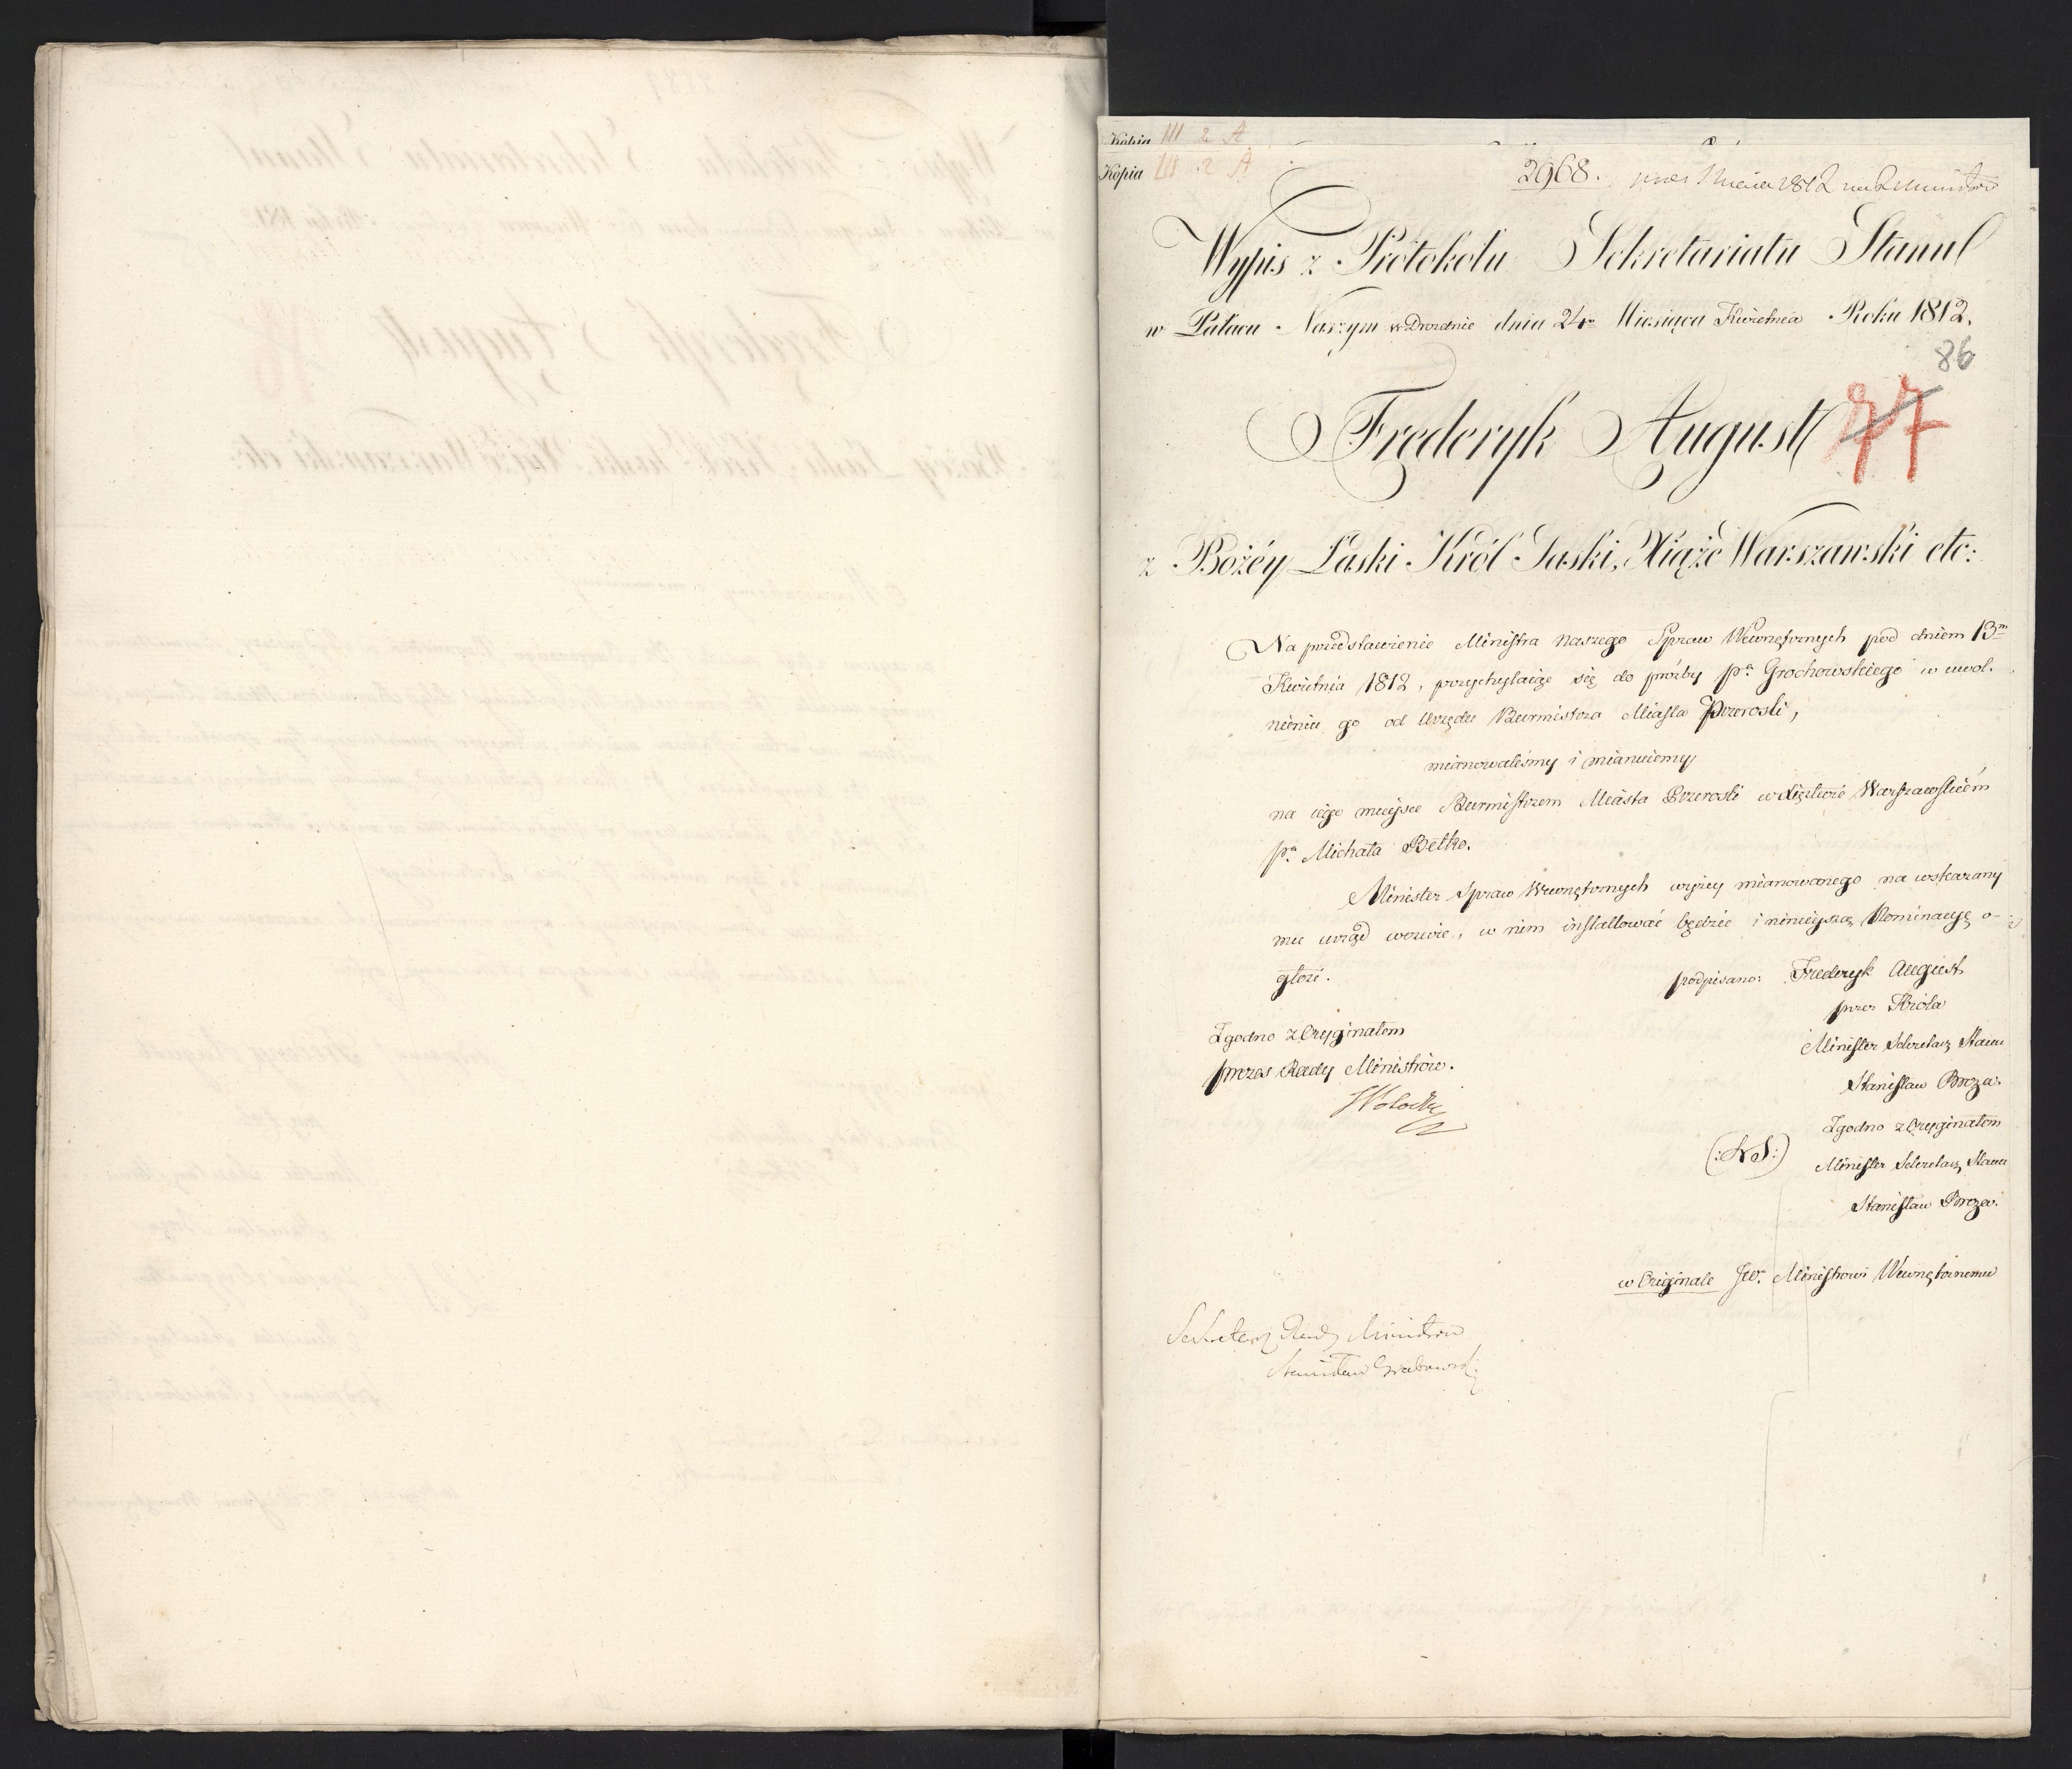 Kopia III 2 A
Kopia III 2 A
2968. pres 1 Maia 1812 na R Ministrów
Wypis z Protokołu Sekretariatu Stanu
w Pałacu Naszym w Dreznie dnia 24go Miesiąca Kwietnia Roku 1812.
86
Fryderyk August 77
z Bożéy Łaski Król Saski, Xiąże Warszawski etc:
Na przedstawienie Ministra naszego Spraw Wewnętrznych pod dniem 13m
Kwietnia 1812, przychylaiąc się do prózby pa Grochowskiego w uwol-
nieniu go od Urzędu Burmistrza Miasta Przerosli,
mianowaliśmy i mianuiemy
na iego mieysce Burmistrzem Miasta Przerosli w Xięstwie Warszawskiém
pa Michała Betko.
Minister Spraw Wewnętrznych wyżey mianowanego na wskazany
mu urząd wezwie, w nim installować będzie i ninieyszą Nominacyę o-
głosi.
podpisano: Fryderyk August
przez Króla
Minister Sekretarz Stanu
Stanisław Breza.
Zgodno z Oryginałem
prezes Rady Ministrów.
Zgodno z Oryginałem
(:L.S:) Minister Sekretarz Stanu
Stanisław Breza.
w Originale JW. Ministrowi Wewnętrznemu
Sekretarz Rady Ministrów
Stanisław Grabowski